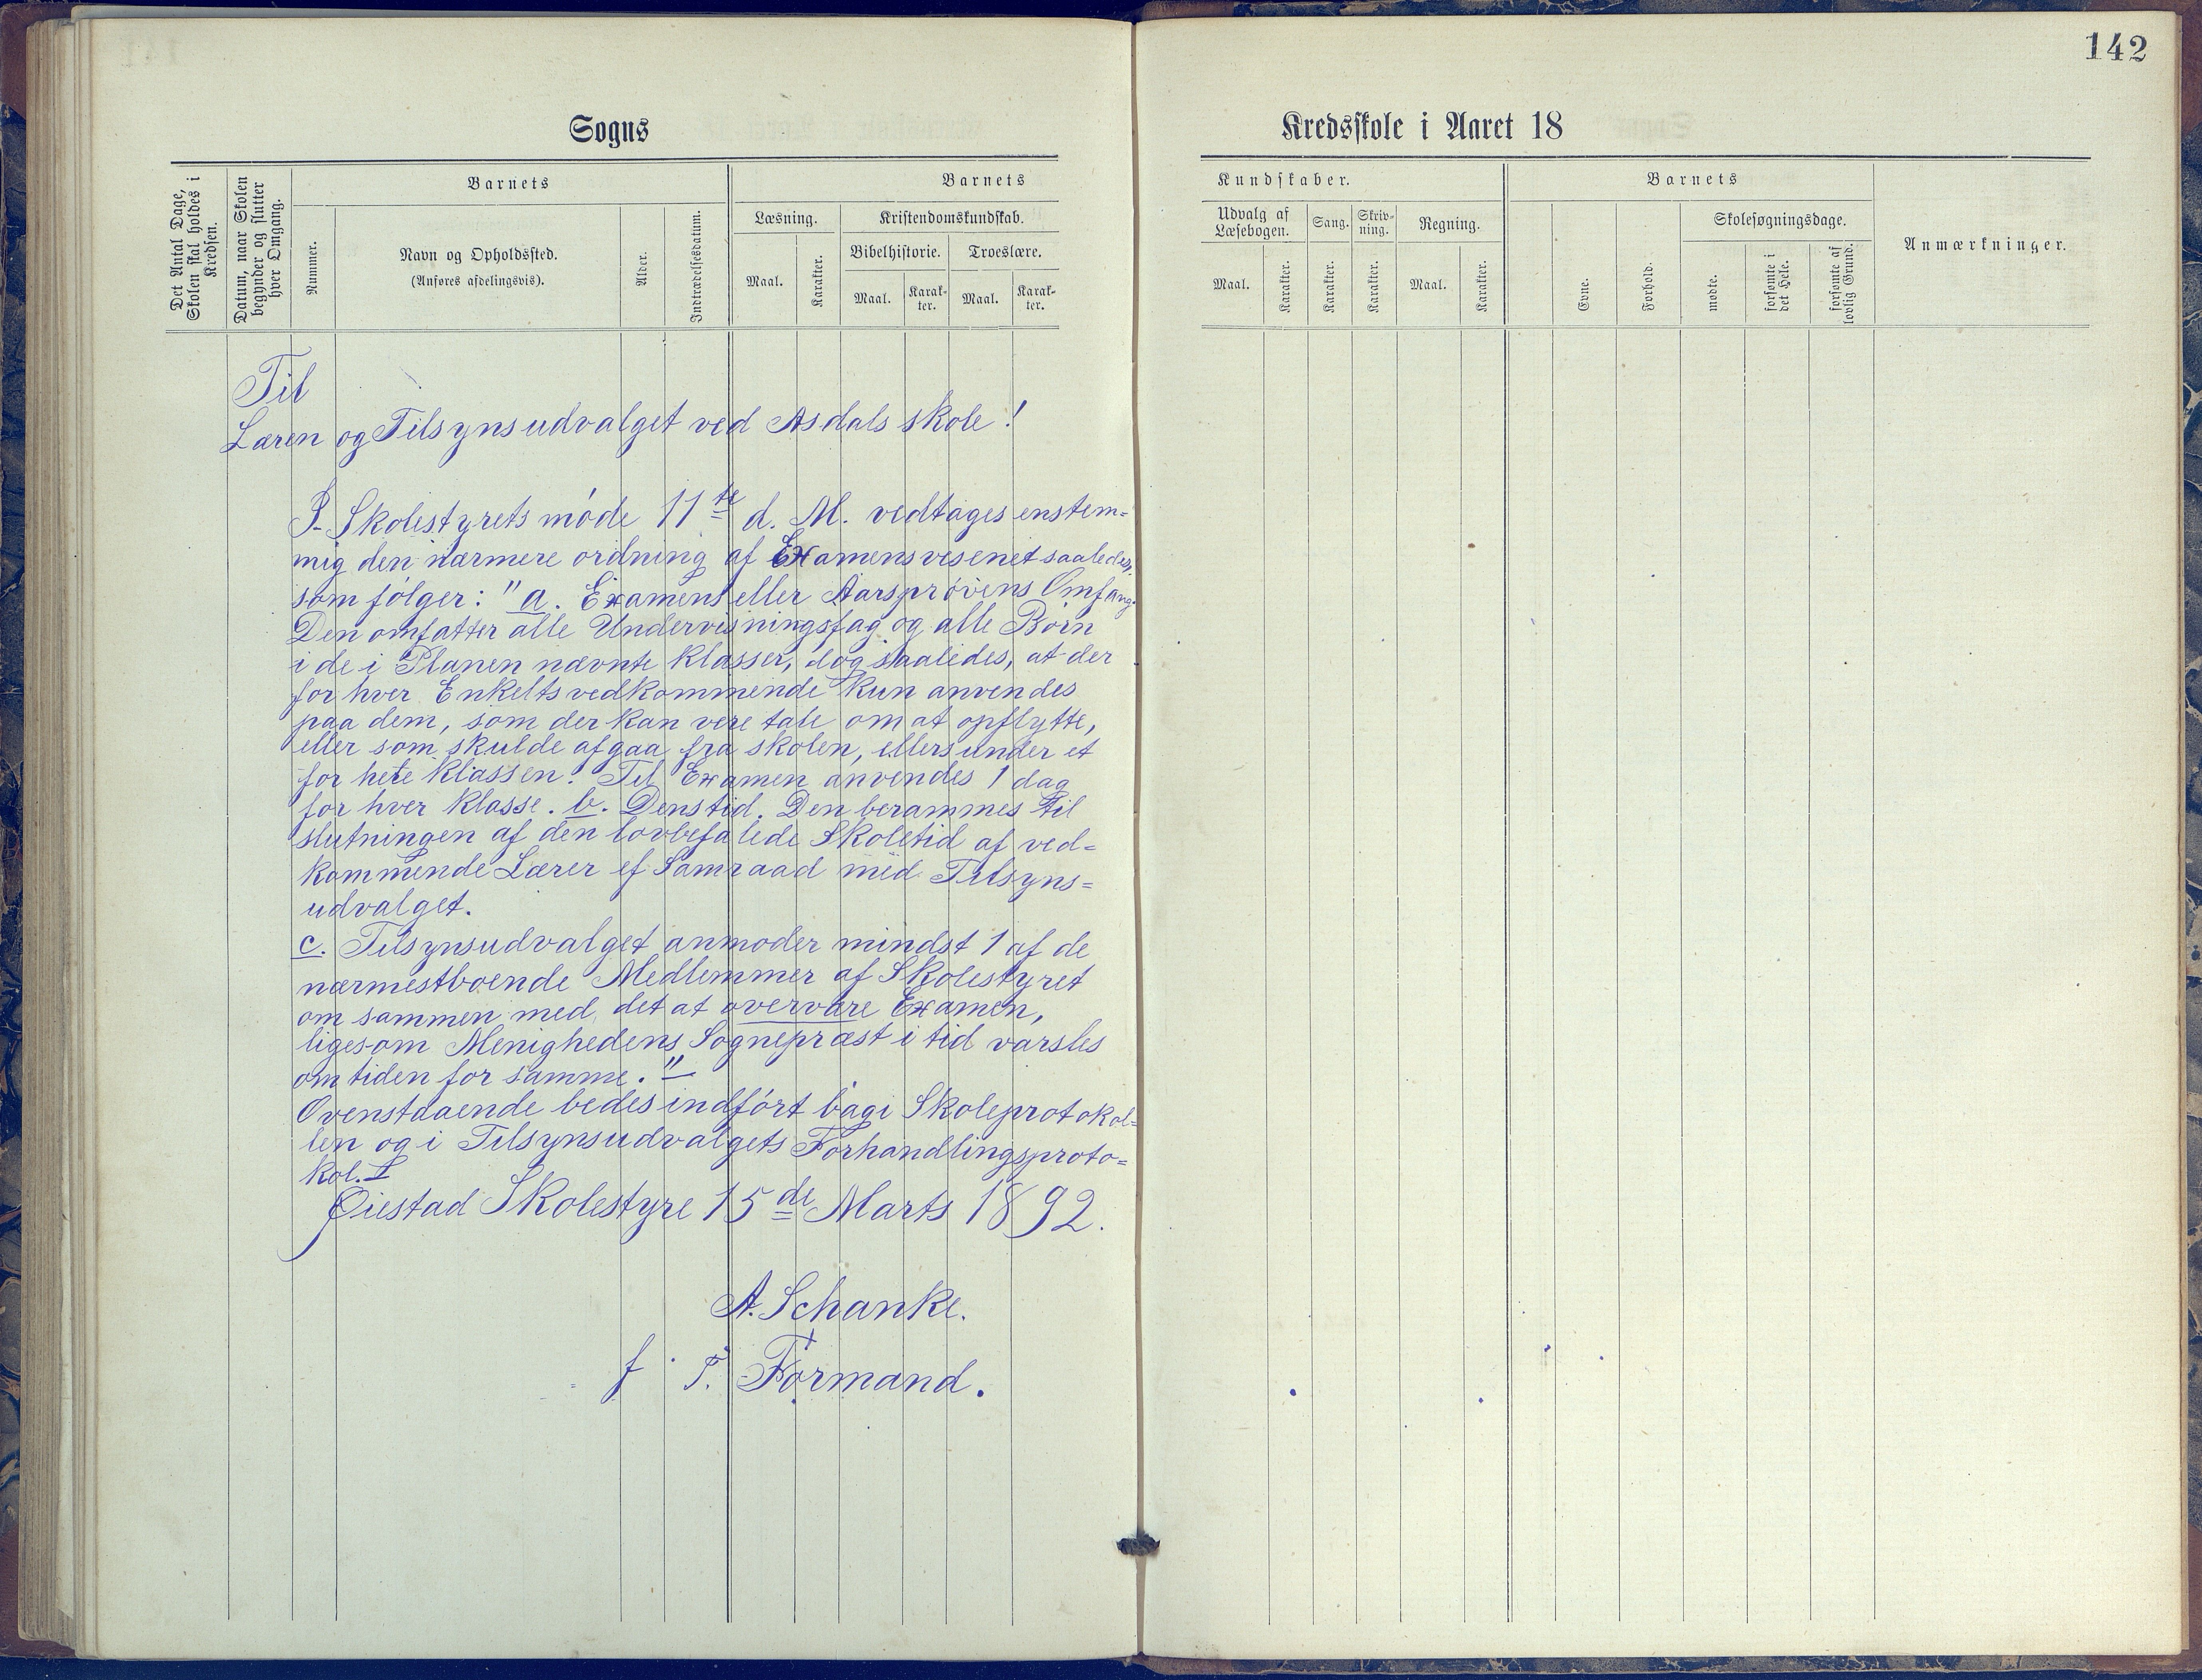 142
Sogns
Kredsskole i Aaret 18
Det Antal Dage,
Skolen skal holdes i
Kredsen.
Datum, naar Skolen
begynder og slutter
hver Omgang.
Barnets
Nummer.
Navn og Opholdssted.
(Anføres afdelingsvis).
Alder.
Indtrædelsesdatum.
Barnets
Læsning.
Maal.
Karakter.
Kristendomskundskab.
Bibelhistorie.
Troeslære.
Maal.
Karak-
ter.
Maal.
Karak-
ter.
Kundskaber.
Udvalg af
Læsebogen.
Sang.
Skriv-
ning.
Regning.
Maal.
Karakter.
Karakter.
Karakter.
Maal.
Karakter.
Barnets
Evne.
Forhold.
Skolesøgningsdage.
mødte.
forsømte i
det Hele.
forsømte af
lovlig Grund.
Anmærkninger.
Til
Læren og Tilsynsudvalget ved Asdals skole!
I Skolestyrets møde 11te d. M. vedtages enstem=
mig den nærmere ordning af Examensvesenet saaledes.
som følger: "a. Examens eller Aarsprøvens Omfang.
Den omfatter alle Undervisningsfag og alle Børn
i de i Planen nævnte klasser, dog saaledes, at der
for hver Enkelts vedkommende kun anvendes
paa dem, som der kan vere tale om at opflytte,
eller som skulde afgaa fra skolen, ellers under et
for hele klassen. Til Examen anvendes 1 dag
for hver klasse. b. Dens tid. Den berammes til
slutningen af den lovbefalede Skoletid af ved=
kommende Lærer ef Samraad med Tilsyns=
udvalget.
c. Tilsynsudvalget anmoder mindst 1 af de
nærmestboende Medlemmer af Skolestyret
om sammen med det at overvære Examen,
ligesom Menighedens Sognepræst i tid varsles
om tiden for samme."
Ovenstaaende bedes indført bagi Skoleprotokol=
len og i Tilsynsudvalgets Forhandlingsproto=
kol.
Øiestad Skolestyre 15de Marts 1892.
A. Schanke.
f. T. Formand.